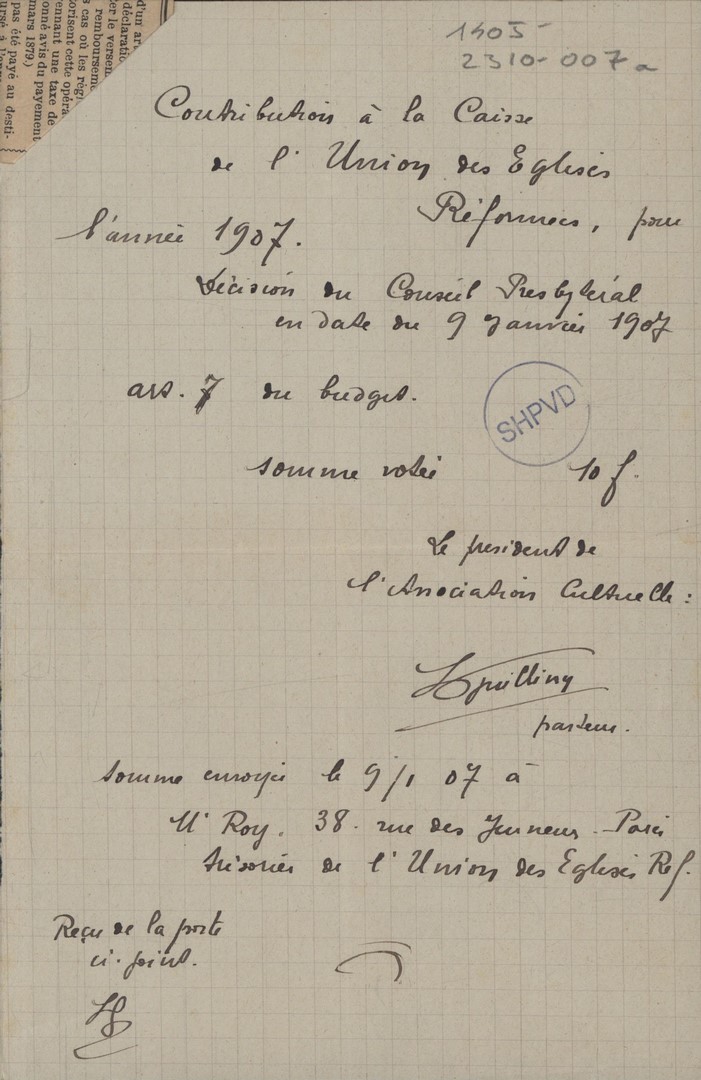 d'un art
déclaratio
er le versem
remboursemen
s cas où les règ
orisent cette opéra
rennant une taxe de
onné avis du payement
mars 1879.)
pas été payé au desti-
1405-
2310-007a
Contribution à la Caisse
de l'Union des Eglises
Réformées, pour
l'année 1907.
Décision du Conseil Presbytéral
en date du 9 janvier 1907
art. 7 du budget.
SHPVD
somme votée 10 f.
Le president de
l'Association Cultuelle :
pasteur.
somme envoyée le 9/1 07 à
Mr Roy. 38. rue des Jeuneurs - Paris
trésorier de l'Union des Eglises Ref.
Reçu de la poste
ci-joint.